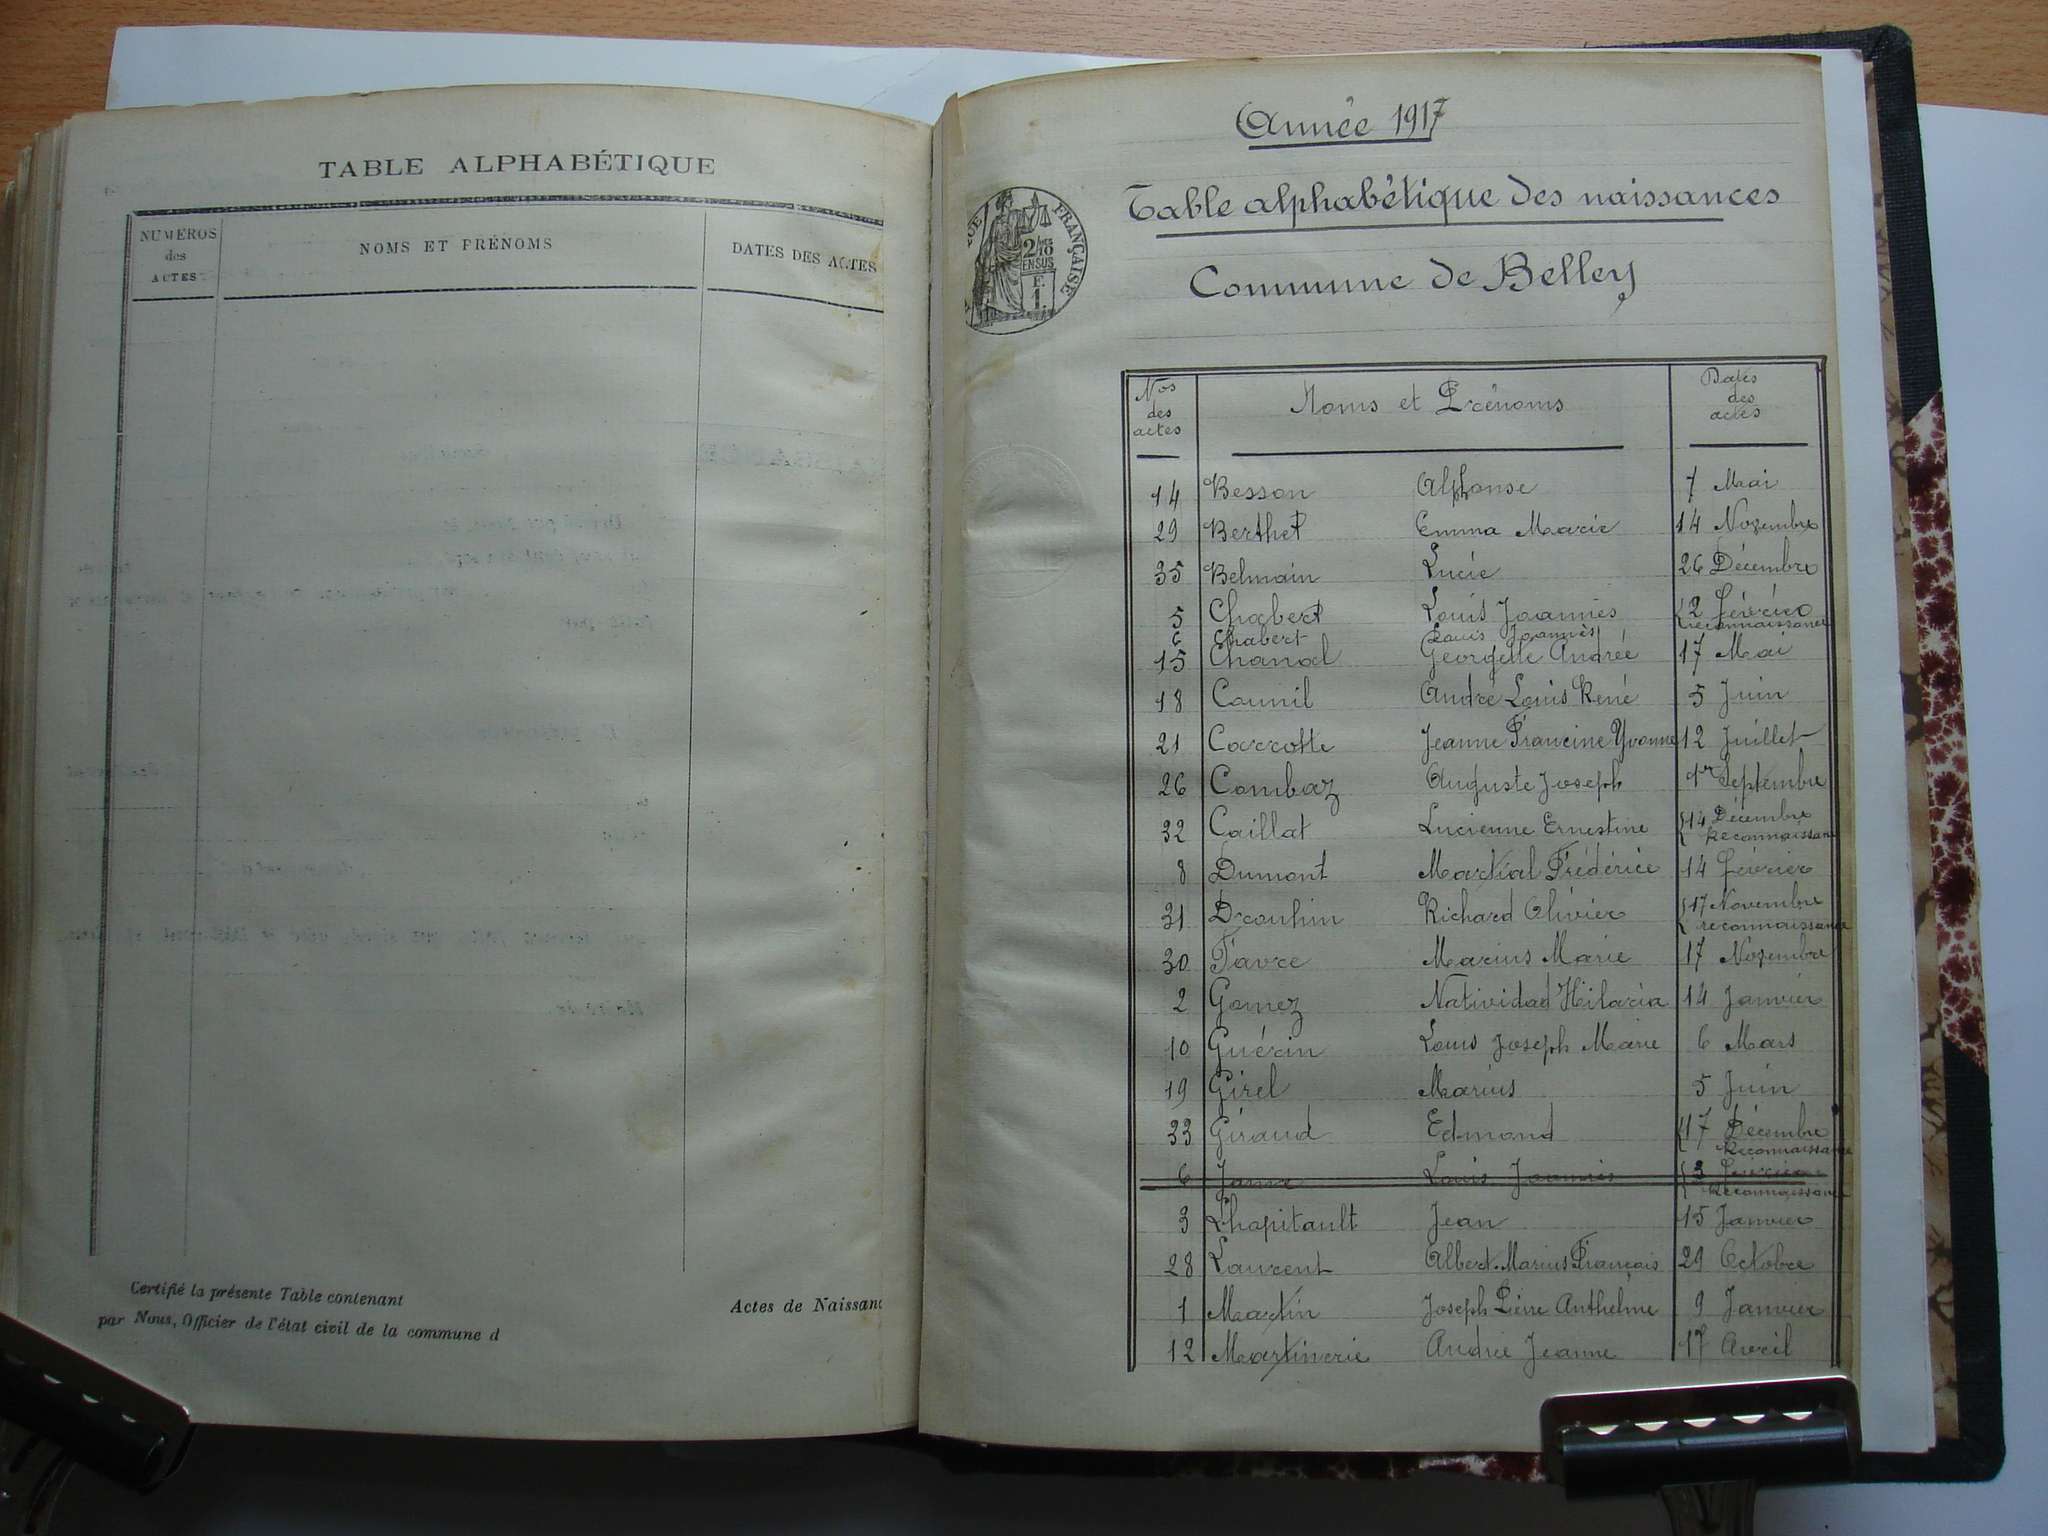 TABLE ALPHABÉTIQUE
NUMÉROS des ACTES
NOMS ET PRÉNOMS
DATES DES ACTES
Certifié la présente Table contenant
Actes de Naissanc
par Nous, Officier de l'état civil de la commune d
Année 1917
Table alphabétique des naissances
Commune de Belley
FRANÇAISE
2/10
EN SUS
F.
1.
Nos des actes
Noms et Prénoms
Dates des actes
14 Besson Alphonse 7 Mai
29 Berthet Emma Marie 14 Novembre
35 Belmain Lucie 26 Décembre
5 Chabert Louis Joannès 2 Février
reconnaissance
6 Chabert Louis Joannès
15 Chanal Georgette Andrée 17 Mai
18 Counil André Louis René 5 Juin
21 Carrotte Jeanne Francine Yvonne 12 Juillet
26 Combaz Auguste Joseph 1er Septembre
32 Caillat Lucienne Ernestine 14 Décembre
Reconnaissance
8 Dumont Martial Frédéric 14 Février
31 Drouhin Richard Olivier 17 Novembre
reconnaissance
30 Favre Marius Marie 17 Novembre
2 Gomez Natividad Hilaria 14 Janvier
10 Guérin Louis Joseph Marie 6 Mars
19 Girel Marius 5 Juin
33 Giraud Edmond 17 Décembre
Reconnaissance
6 Louis Joannès 3 Février
Reconnaissance
3 Lhapitault Jean 15 Janvier
28 Laurent Albert Marius François 29 Octobre
1 Martin Joseph Pierre Anthelme 9 Janvier
12 Martinerie Andrée Jeanne 17 Avril